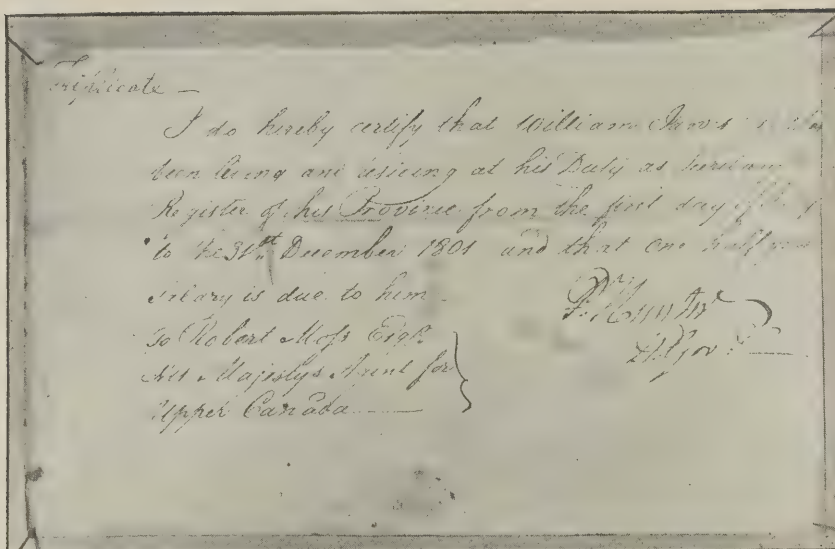 Triplicate —
I do hereby certify that William Jarvis
been living and residing at his Duty as
Register of this Province from the first day of
to the 31st December 1801 and that one half
salary is due to him —
To Robert Moss Esqr.
His Majestys Agent for
Upper Canada —
P. Hunter
Lt Gov